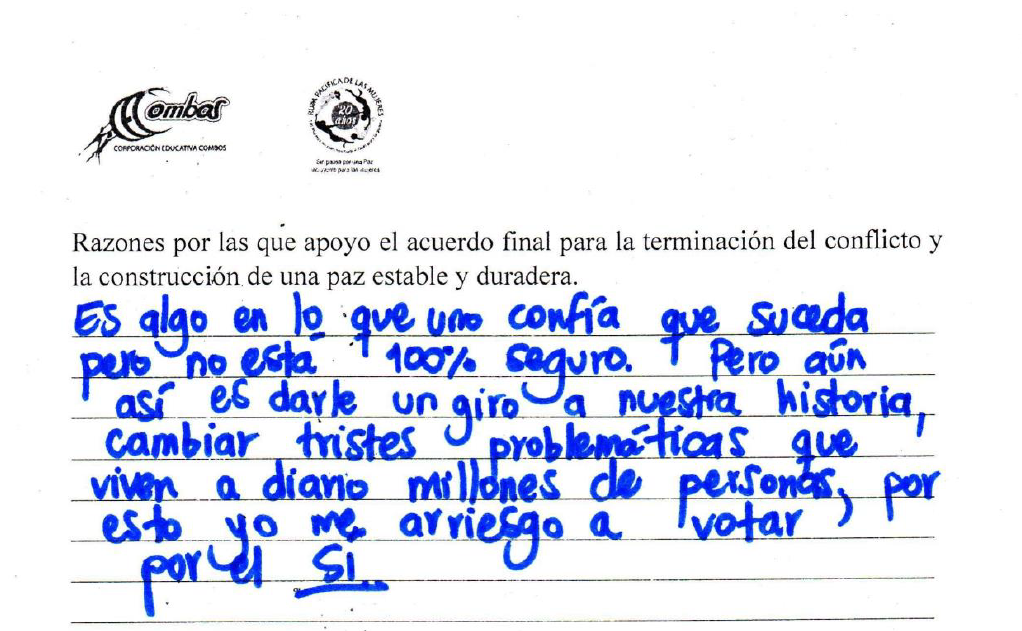 Combos
CORPORACIÓN EDUCATIVA COMBOS
RUTA PACIFICA DE LAS MUJERES
20 años
Sin pausa por una Paz
Razones por las que apoyo el acuerdo final para la terminación del conflicto y
la construcción de una paz estable y duradera.
Es algo en lo que uno confía que suceda
pero no está 100% seguro. Pero aún
así es darle un giro a nuestra historia,
cambiar tristes problemáticas que
viven a diario millones de personas, por
esto yo me arriesgo a votar
por el SI..